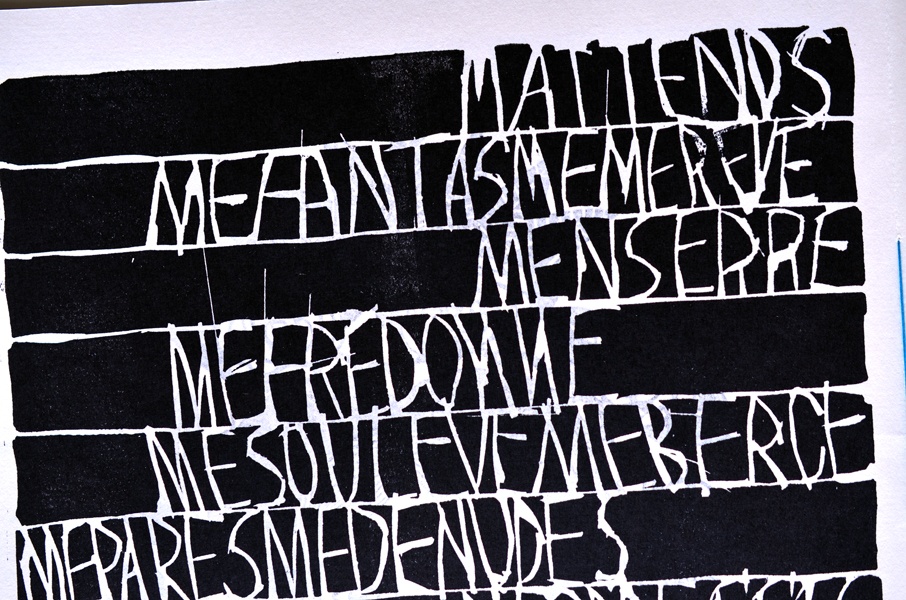 MATTENDS
MEFANTASMEMEREVE
MENSERRE
MEFRÉDONNE
MESOULEVEMEBERCE
MEPARESMEDENUDES